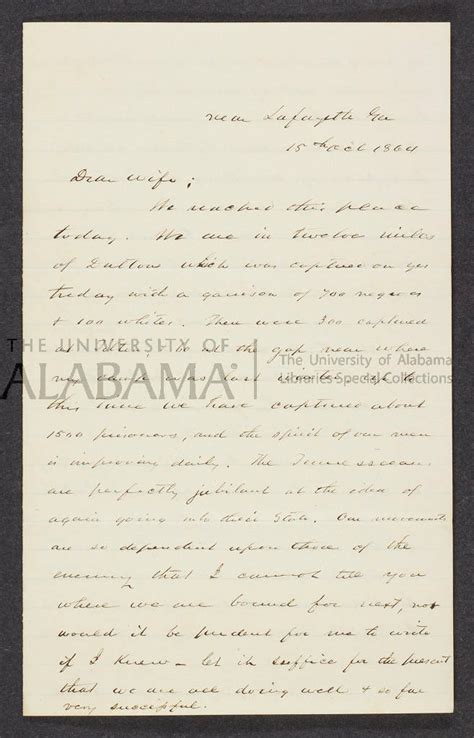 near Lafayette Ga
15th Oct 1864
Dear Wife;
We reached this place
today. We are in twelve miles
of Dalton which was captured on yes
treday with a garrison of 700 negroes
& 100 whites. There were 300 captured
at & 60 at the gap near where
my camp was last winter. Up to
this time we have captured about
1500 prisoners, and the spirit of our men
is improving daily. The Tennesseeans
are perfectly jubilant at the idea of
again going into their State. Our movements
are so dependent upon those of the
enemy that I cannot tell you
where we are bound for next, nor
would it be prudent for me to write
if I knew - let it suffice for the present
that we are all doing well & so far
very successful.
THE UNIVERSITY OF
ALABAMA
The University of Alabama
Libraries Special Collections